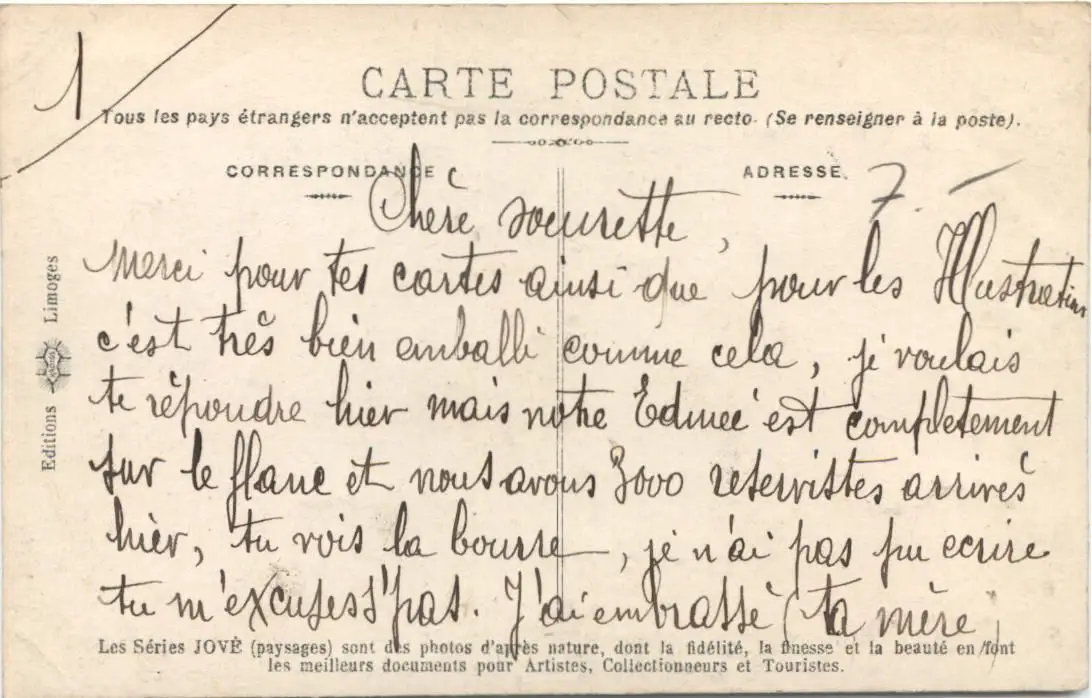 1
CARTE POSTALE
Tous les pays étrangers n'acceptent pas la correspondance au recto. (Se renseigner à la poste).
CORRESPONDANCE
ADRESSE.
7. -
Chère soeurette,
Merci pour tes cartes ainsi que pour les Illustration
c'est très bien emballé comme cela, je voulais
te répondre hier mais notre Edmeé est completement
sur le flanc et nous avons 3000 reservistes arrivés
hier, tu vois la bourre, je n'ai pas pu ecrire
tu m'excuses pas. J'ai embrassé ta mère,
Les Séries JOVÉ (paysages) sont des photos d'après nature, dont la fidélité, la finesse et la beauté en font
les meilleurs documents pour Artistes, Collectionneurs et Touristes.
Editions Limoges